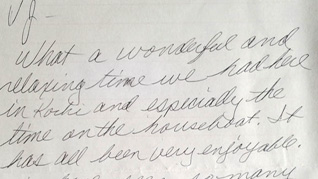 J-
What a wonderful and
relaxing time we had here
in Kochi and especially the
time on the houseboat. It
has all been very enjoyable.
so many